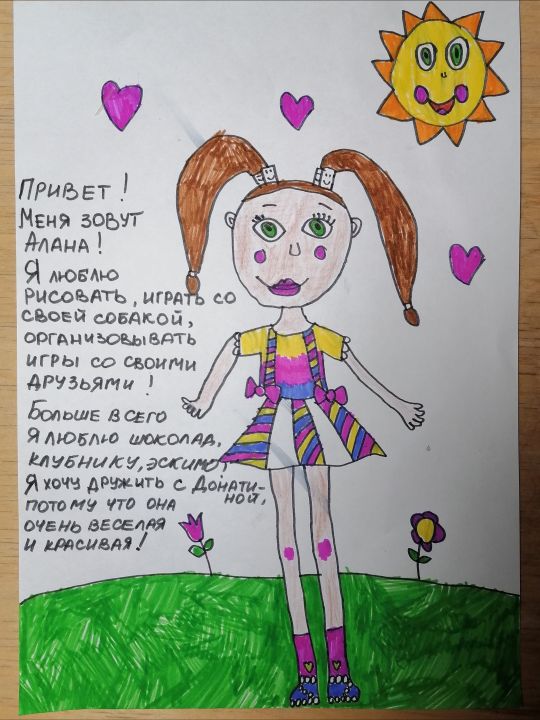 Привет!
Меня зовут
Алана!
Я люблю
рисовать, играть со
своей собакой,
организовывать
игры со своими
друзьями!
Больше всего
я люблю шоколад,
клубнику, эскимо,
Я хочу дружить с Донати-
ной,
потому что она
очень веселая
и красивая!